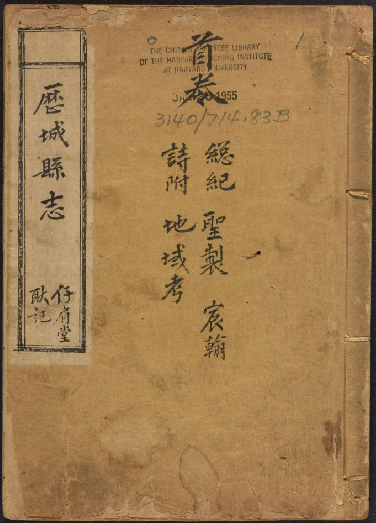 首卷
THE CHINESE-JAPANESE LIBRARY
OF THE HARVARD-YENCHING INSTITUTE
AT HARVARD UNIVERSITY
1955
3140/714.83B
緫紀 聖製 宸翰
詩附 地域考
厯城縣志
仔肩堂
耿記